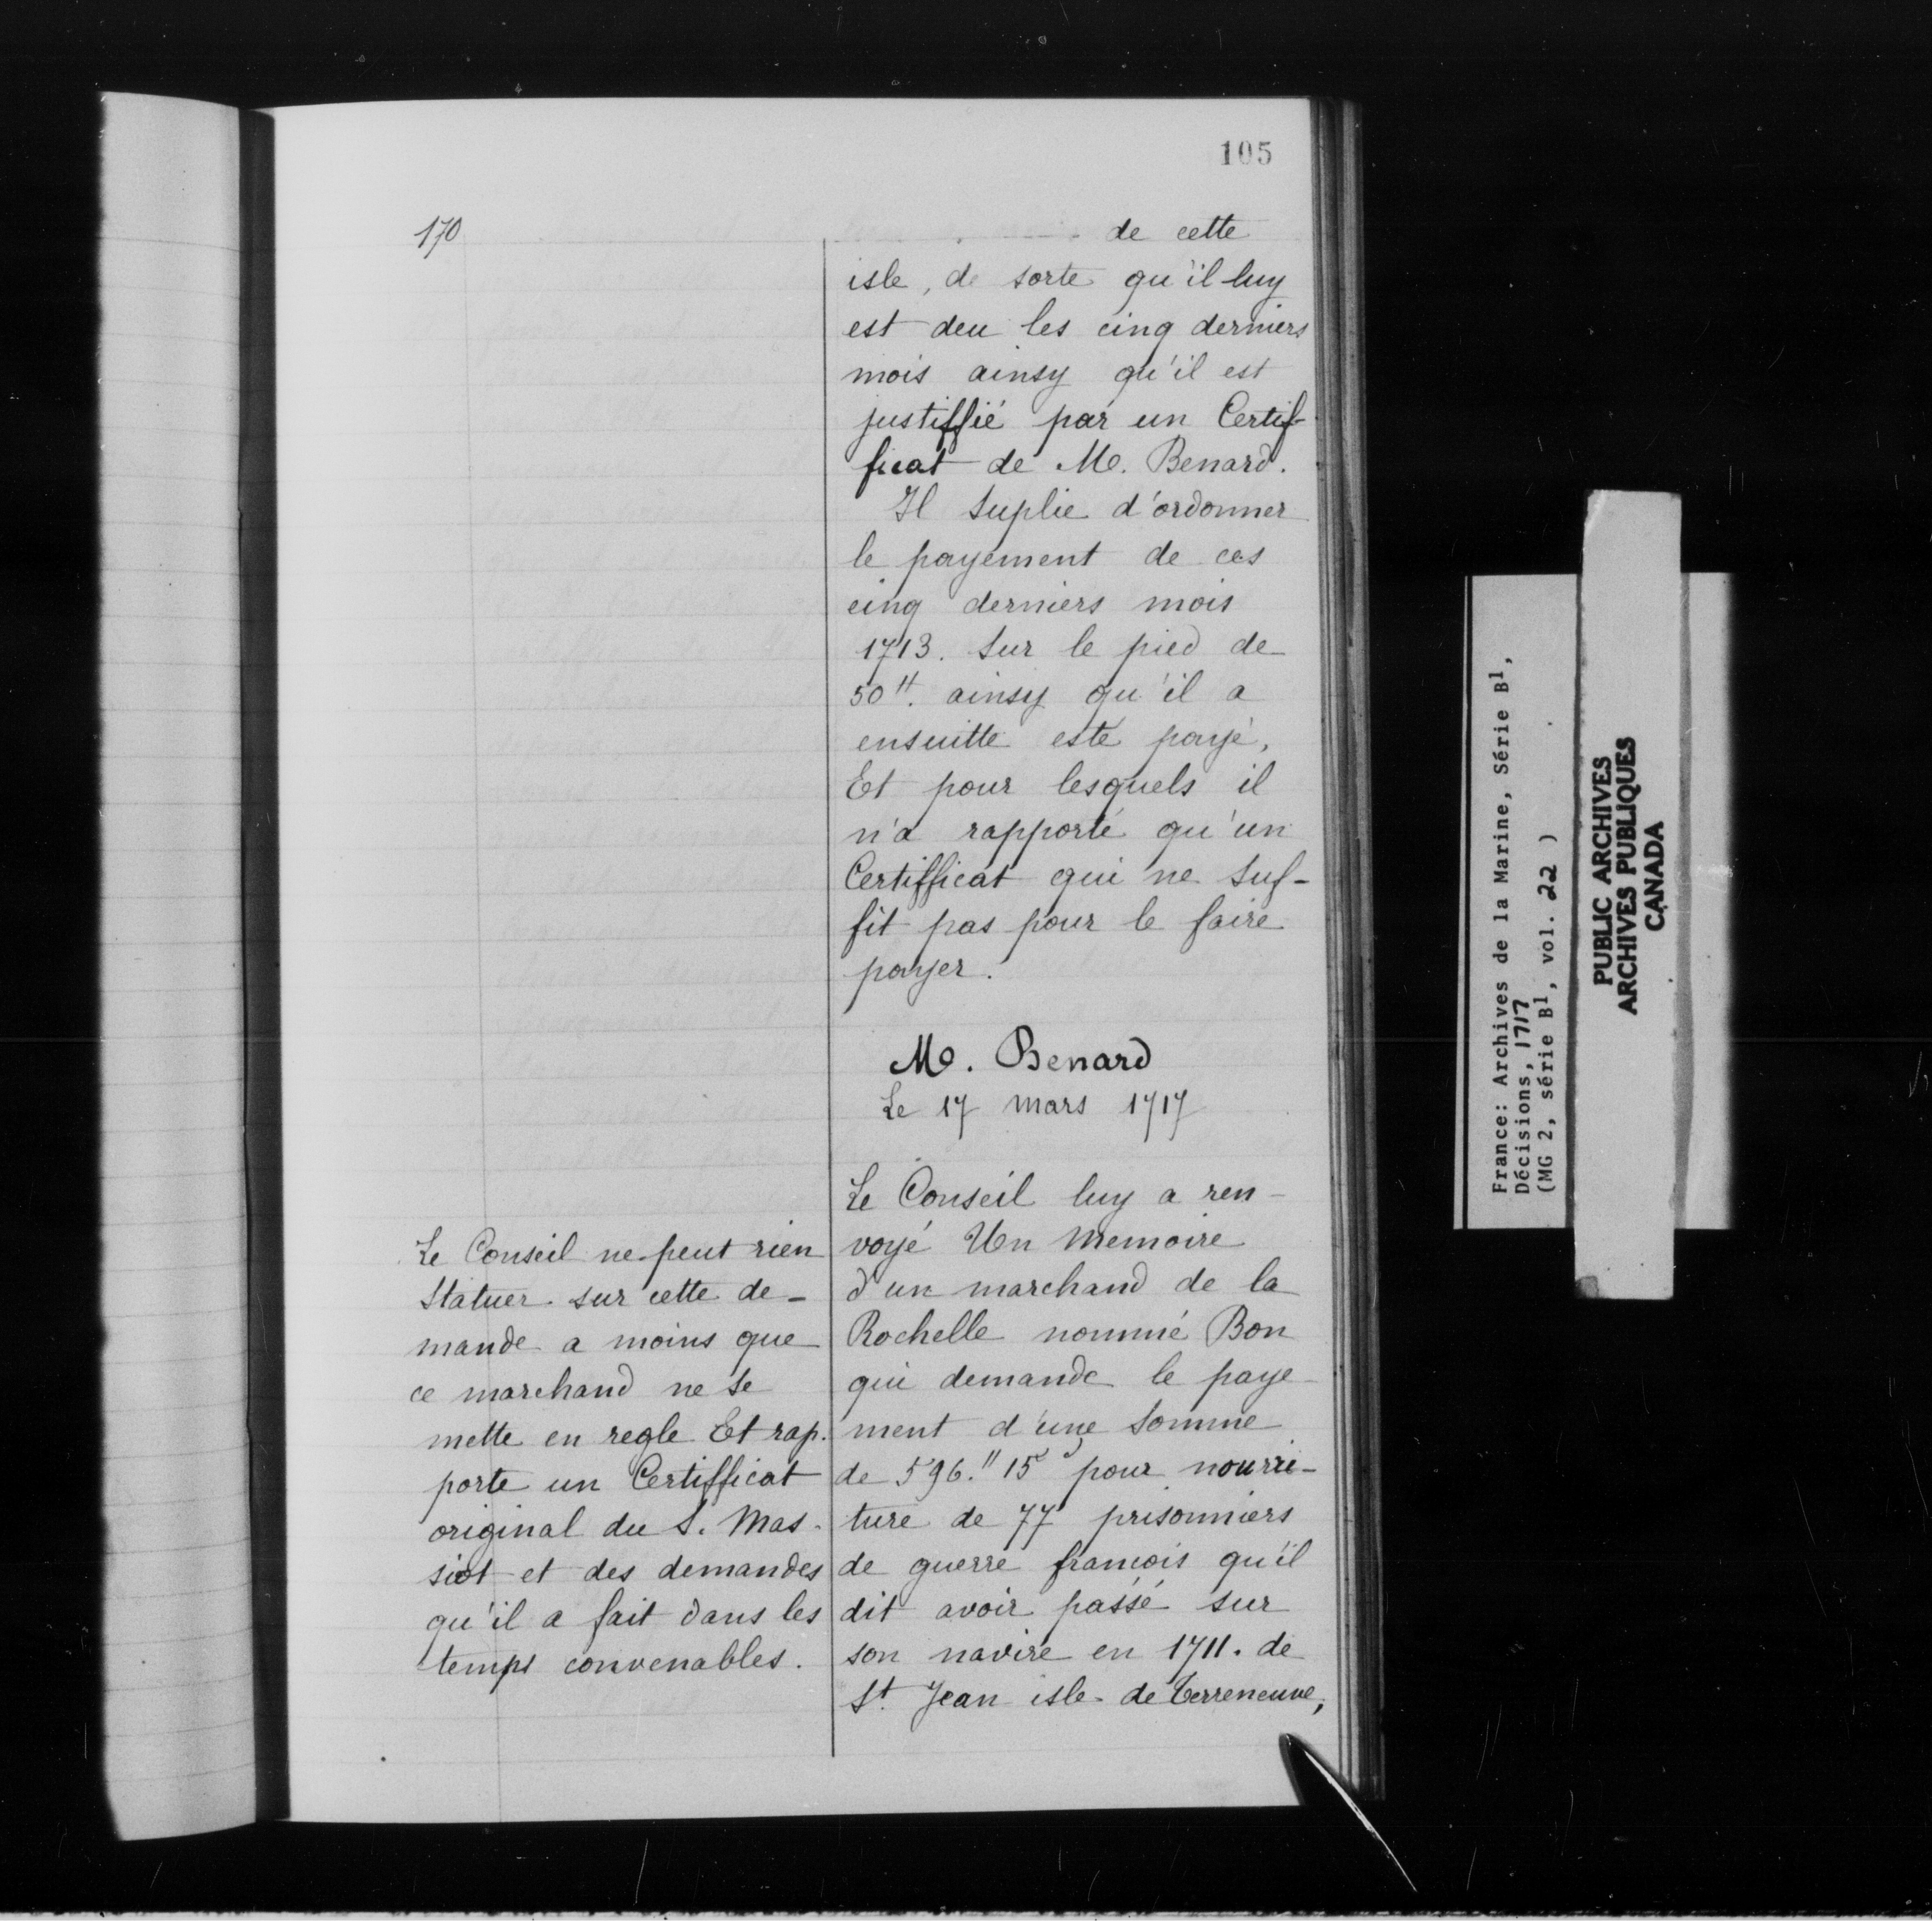 105
170
de cette
isle, de sorte qu'il luy
est deu les cinq derniers
mois ainsy qu'il est
justiffié par un Certif-
ficat de M. Benard.
Il suplie d'ordonner
le payement de ces
cinq derniers mois
1713. sur le pied de
50tt. ainsy qu'il a
ensuitte esté payé,
Et pour lesquels il
n'a rapporté qu'un
Certifficat qui ne suf-
fit pas pour le faire
payer.
M. Benard
Le 17 mars 1717
Le Conseil luy a ren-
voyé Un memoire
d'un marchand de la
Rochelle nommé Bon
qui demande le paye-
ment d'une somme
de 596.tt 15s pour nourri-
ture de 77 prisonniers
de guerre francois qu'il
dit avoir passé sur
son navire en 1711. de
St. Jean isle de Terreneuve,
Le Conseil ne peut rien
Statuer sur cette de-
mande a moins que
ce marchand ne se
mette en regle Et rap-
porte un Certifficat
original du S. Mas-
siot et des demandes
qu'il a fait dans les
temps convenables.
France: Archives de la Marine, Série B1,
Décisions, 1717
(MG 2, série B1, vol. 22 )
PUBLIC ARCHIVES
ARCHIVES PUBLIQUES
CANADA